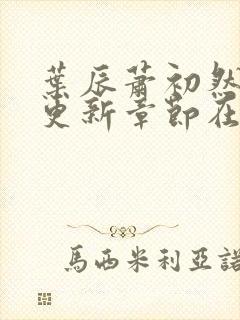 葉辰蕭初然
更新章節在
馬西米利亞諾